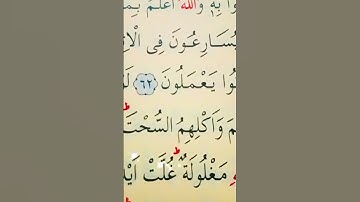 وا بِهِ وَاللهُ اَعْلَمُ بِمَا
يُسَارِعُونَ فِى الْاِ
وا يَعْمَلُونَ ﴿٦٢﴾ لَوْ
مَ وَاَكْلِهِمُ السُّحْتَ
مَغْلُولَةٌ غُلَّتْ اَيْد